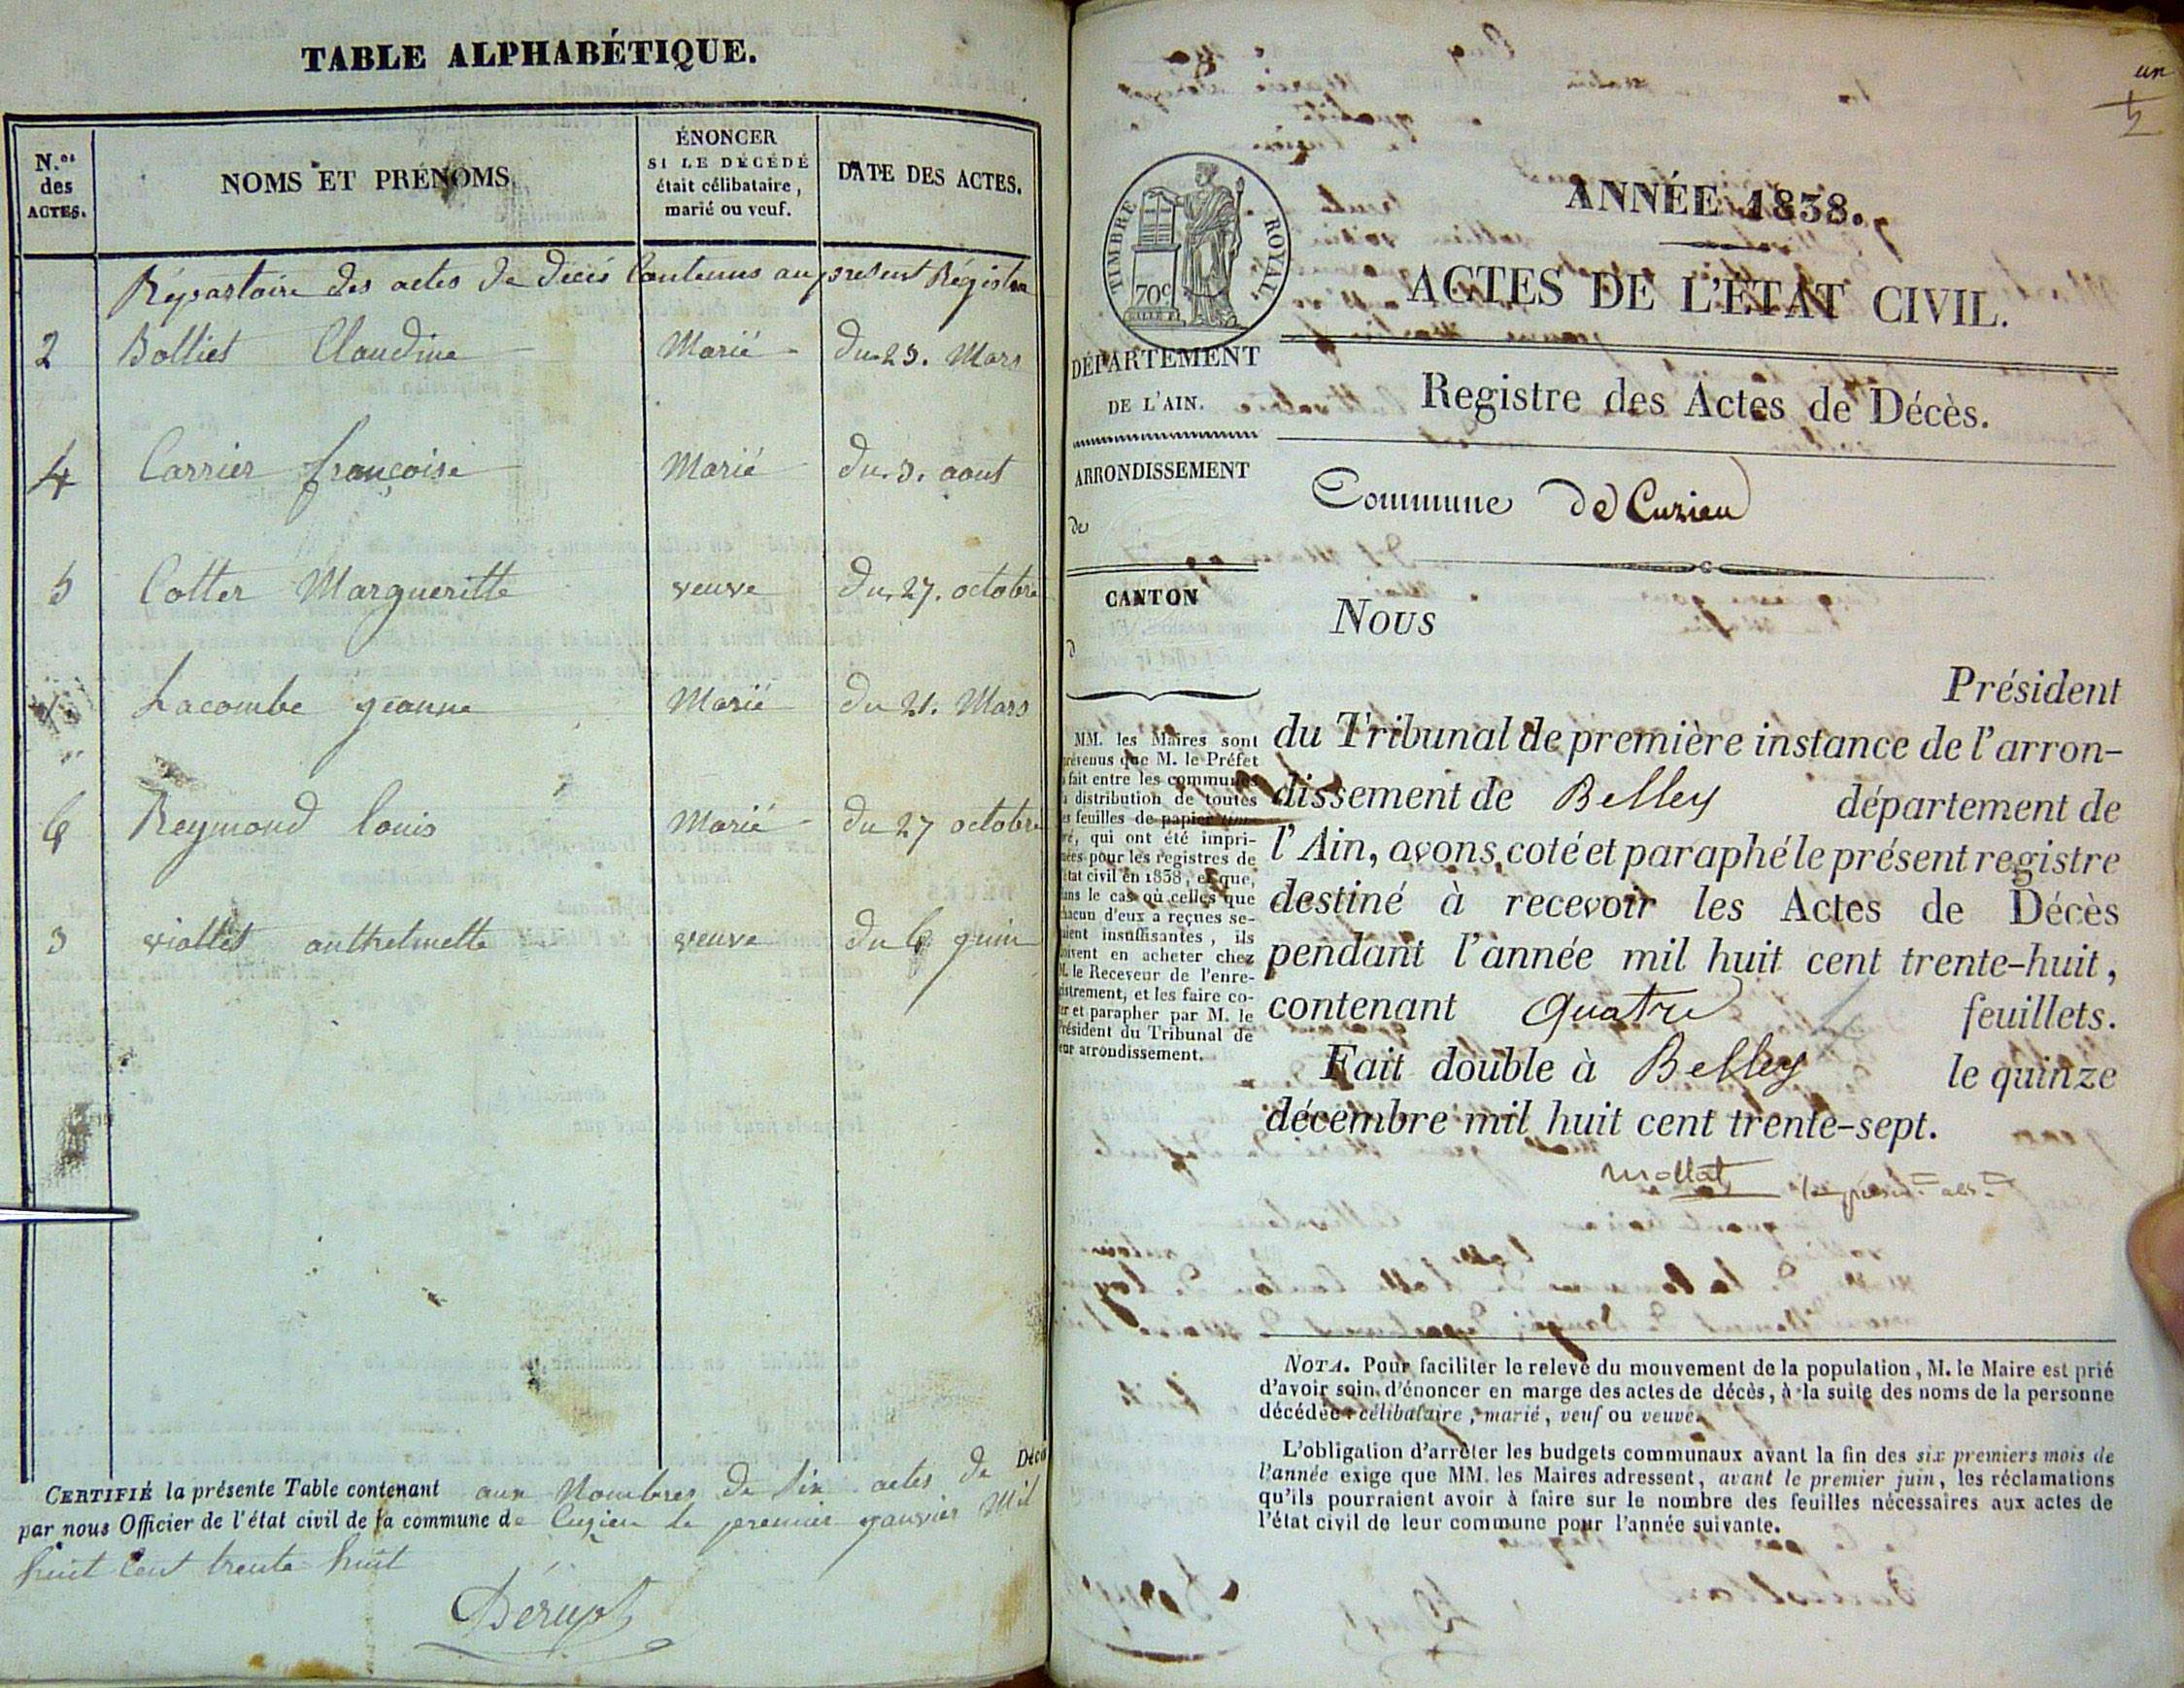 TABLE ALPHABÉTIQUE.
N.os des ACTES.
NOMS ET PRÉNOMS.
ÉNONCER
SI LE DÉCÉDÉ
était célibataire,
marié ou veuf.
DATE DES ACTES.
Répertoire des actes de décès Contenus au present Régistre
2 Bolliet Claudine Marié du 23. Mars
4 Carrier françoise Marié du. 3. aout
5 Cotter Margueritte veuve Du. 27. octobre
Lacombe jeanne Marié du 21. Mars
6 Reymond louis Marié du 27 octobre
3 viollet anthelmette veuve du 6 juin
CERTIFIÉ la présente Table contenant aux Nombres de six actes de Décès
par nous Officier de l'état civil de la commune de Cuzieu le premier janvier Mil
huit Cent trente huit
un
ANNÉE 1838.
TIMBRE ROYAL.
70c
ACTES DE L'ÉTAT CIVIL.
DÉPARTEMENT
DE L'AIN.
Registre des Actes de Décès.
ARRONDISSEMENT
de
Commune de Cuzieu
CANTON
d
Nous
Président
du Tribunal de première instance de l'arron-
dissement de Belley département de
l'Ain, avons coté et paraphé le présent registre
destiné à recevoir les Actes de Décès
pendant l'année mil huit cent trente-huit,
contenant quatre feuillets.
Fait double à Belley le quinze
décembre mil huit cent trente-sept.
mollat
MM. les Maires sont
prévenus que M. le Préfet
a fait entre les communes
la distribution de toutes
les feuilles de papier tim-
bré, qui ont été impri-
mées pour les registres de
l'état civil en 1838, et que,
dans le cas où celles que
chacun d'eux a reçues se-
raient insuffisantes, ils
doivent en acheter chez
M. le Receveur de l'enre-
gistrement, et les faire co-
ter et parapher par M. le
Président du Tribunal de
leur arrondissement.
NOTA. Pour faciliter le relevé du mouvement de la population, M. le Maire est prié
d'avoir soin d'énoncer en marge des actes de décès, à la suite des noms de la personne
décédée : célibataire, marié, veuf ou veuve.
L'obligation d'arrêter les budgets communaux avant la fin des six premiers mois de
l'année exige que MM. les Maires adressent, avant le premier juin, les réclamations
qu'ils pourraient avoir à faire sur le nombre des feuilles nécessaires aux actes de
l'état civil de leur commune pour l'année suivante.